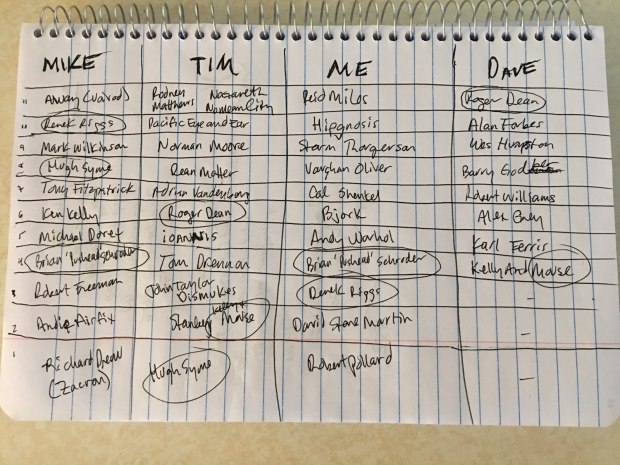 MIKE TIM ME DAVE
11 Away (Voivod) Rodney Matthews Nazareth Reid Miles Roger Dean
10 Derek Riggs Pacific Eye and Ear Hipgnosis Alan Forbes
9 Mark Wilkinson Norman Moore Storm Thorgerson Wes
8 Hugh Syme Dean Motter Vaughan Oliver Barry God
7 Tony Fitzpatrick Adrian Cal Shenkel Robert Williams
6 Ken Kelly Roger Dean Bjork Alex Grey
5 Michael Doret ioANNIS Andy Warhol Karl Ferris
4 Brian 'Pushead' Schroder Tom Drennan Brian 'Pushead' Schroder Kelly And Mouse
3 Robert Freeman John Taylor Dismukes Derek Riggs –
2 Andie Airfix Stanley Mouse David Stone Martin –
1 Richard Drew (Zacron) Hugh Syme Robert Pollard –